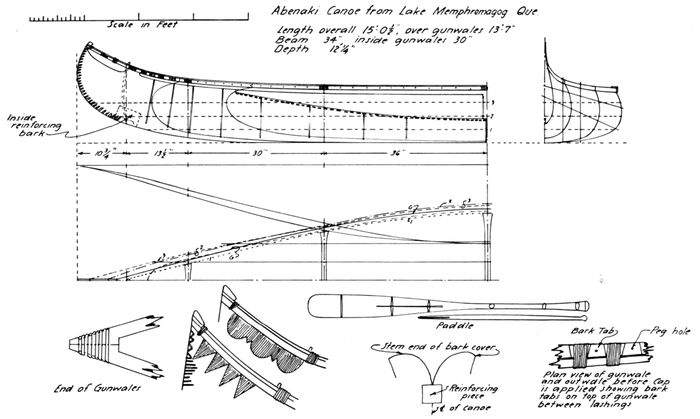 Abenaki Canoe from Lake Memphremagog Que.
Scale in Feet
Length overall 15'0½", over gunwales 13'7"
Beam 34" inside gunwales 30"
Depth 12¼"
3
2
1
Inside
reinforcing
bark
10¾" 13½" 30" 36"
Paddle
End of Gunwales
Stem end of bark cover
Reinforcing
piece
℄ of canoe
Bark Tab
Peg hole
Plan view of gunwale
and outwale before cap
is applied showing bark
tabs on top of gunwale
between lashings